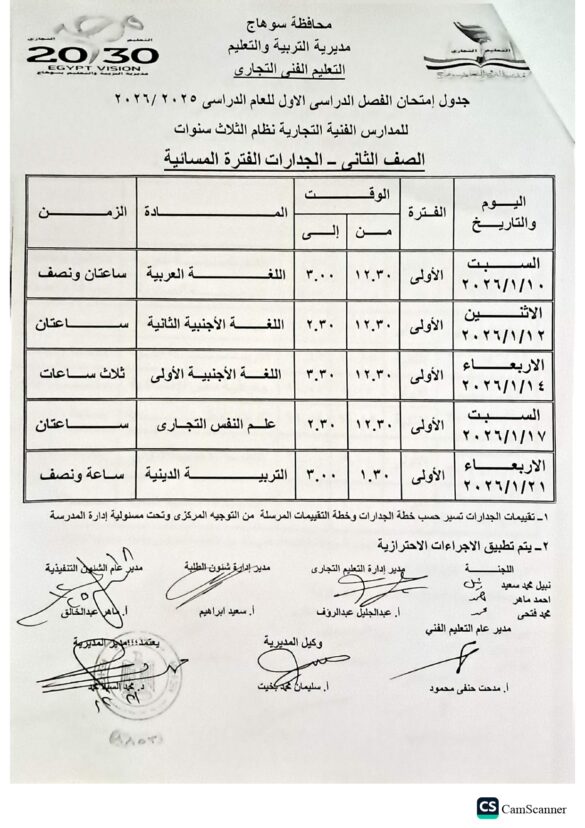 محافظة سوهاج
مديرية التربية والتعليم
التعليم الفنى التجارى
20/30
EGYPT VISION
مديرية التربية والتعليم بسوهاج
جدول إمتحان الفصل الدراسى الاول للعام الدراسى ٢٠٢٥ /٢٠٢٦
للمدارس الفنية التجارية نظام الثلاث سنوات
الصف الثانى – الجدارات الفترة المسائية
اليوم والتاريخ الفترة الوقت المادة الزمن
من إلى
السبت ٢٠٢٦/١/١٠ الأولى ١٢.٣٠ ٣.٠٠ اللغة العربية ساعتان ونصف
الاثنين ٢٠٢٦/١/١٢ الأولى ١٢.٣٠ ٢.٣٠ اللغة الأجنبية الثانية ساعتان
الاربعاء ٢٠٢٦/١/١٤ الأولى ١٢.٣٠ ٣.٣٠ اللغة الأجنبية الأولى ثلاث ساعات
السبت ٢٠٢٦/١/١٧ الأولى ١٢.٣٠ ٢.٣٠ علم النفس التجارى ساعتان
الاربعاء ٢٠٢٦/١/٢١ الأولى ١.٣٠ ٣.٠٠ التربية الدينية ساعة ونصف
١ – تقييمات الجدارات تسير حسب خطة الجدارات وخطة التقييمات المرسلة من التوجيه المركزى وتحت مسئولية إدارة المدرسة
٢ – يتم تطبيق الاجراءات الاحترازية
اللجنة مدير إدارة التعليم التجارى مدير إدارة شئون الطلبة مدير عام الشئون التنفيذية
نبيل محمد سعيد
احمد ماهر
محمد فتحى أ. عبدالجليل عبدالرؤف أ. سعيد ابراهيم أ. ماهر عبدالخالق
مدير عام التعليم الفني وكيل المديرية يعتمد،،، مدير المديرية
أ. مدحت حنفى محمود أ. سليمان محمد بخيت د. محمد السيد محمد
CS CamScanner